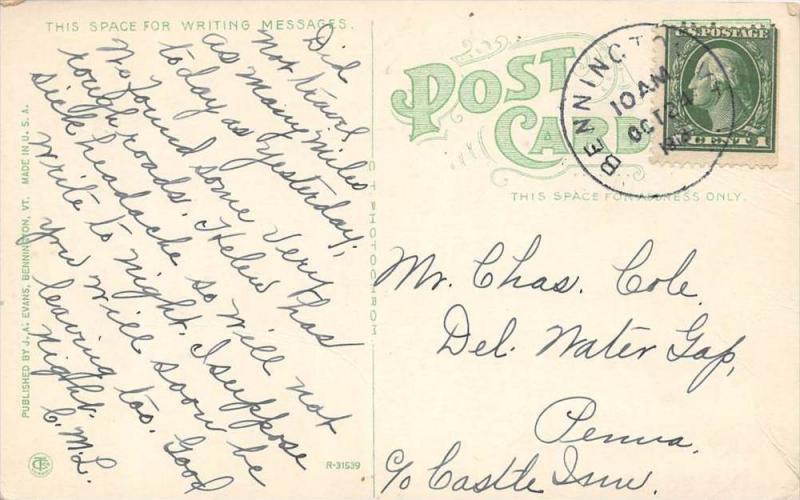 THIS SPACE FOR WRITING MESSAGES.
Did
not travel
as many miles
today as yesterday;
No found some very
rough roads. Helen has
sick headache so will not
write to night. I suppose
you will soon be
leaving too. Good
night.
C.M.L.
PUBLISHED BY J. A. EVANS, BENNINGTON, VT. MADE IN U. S. A.
R-31539
POST
CARD
THIS SPACE FOR ADDRESS ONLY.
BENNINGTON
10 AM
OCT 24
U.S. POSTAGE
1 CENT 1
Mr. Chas. Cole.
Del. Water Gap,
Penna.
c/o Castle Inn.